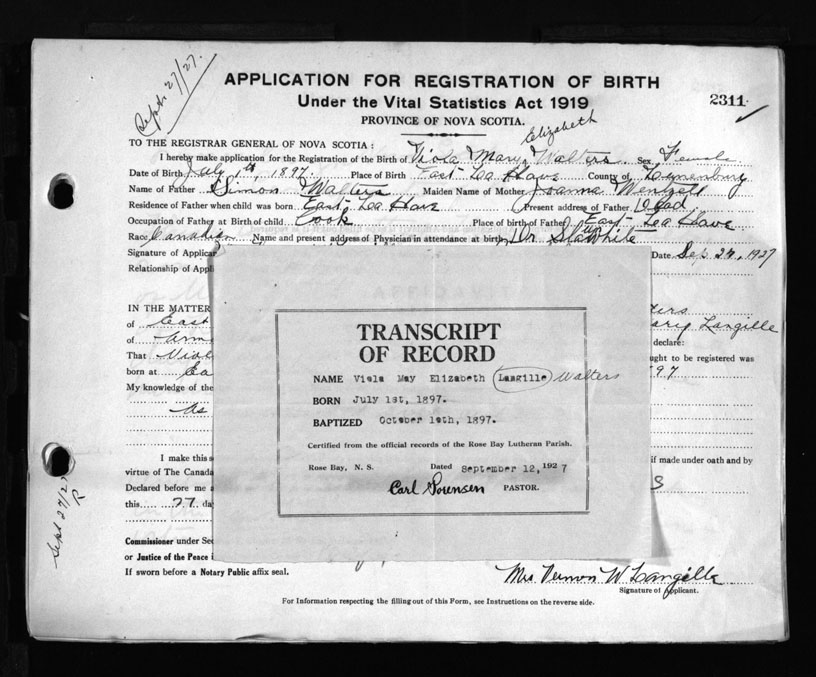 Sept. 27/27.
APPLICATION FOR REGISTRATION OF BIRTH
Under the Vital Statistics Act 1919
2311
PROVINCE OF NOVA SCOTIA.
Elizabeth
TO THE REGISTRAR GENERAL OF NOVA SCOTIA:
I hereby make application for the Registration of the Birth of Viola Mary Walters Sex Female
Date of Birth July 1st, 1897. Place of Birth East La Have County of Lunenburg
Name of Father Simon Walters Maiden Name of Mother Joanna Wentzell
Residence of Father when child was born East La Have Present address of Father Dead
Occupation of Father at Birth of child Cook Place of birth of Father East La Have
Race Canadian Name and present address of Physician in attendance at birth Dr
Signature of Applicat Date Sep. 27, 1927
Relationship of Appl
IN THE MATTER
of East ary Langille
of declare:
That Viol ught to be registered was
born at Ea 97
My knowledge of the
As
TRANSCRIPT
OF RECORD
NAME Viola May Elizabeth Langille Walters
BORN July 1st, 1897.
BAPTIZED October 10th, 1897.
Certified from the official records of the Rose Bay Lutheran Parish.
Rose Bay, N. S. Dated September 12, 1927
Carl Sorensen PASTOR.
I make this s if made under oath and by
virtue of The Canada
Declared before me a S
this 27 da
Sept 27/27
R
Commissioner under Sec
or Justice of the Peace i
If sworn before a Notary Public affix seal.
Mrs Vernon W Langille
Signature of Applicant.
For Information respecting the filling out of this Form, see Instructions on the reverse side.